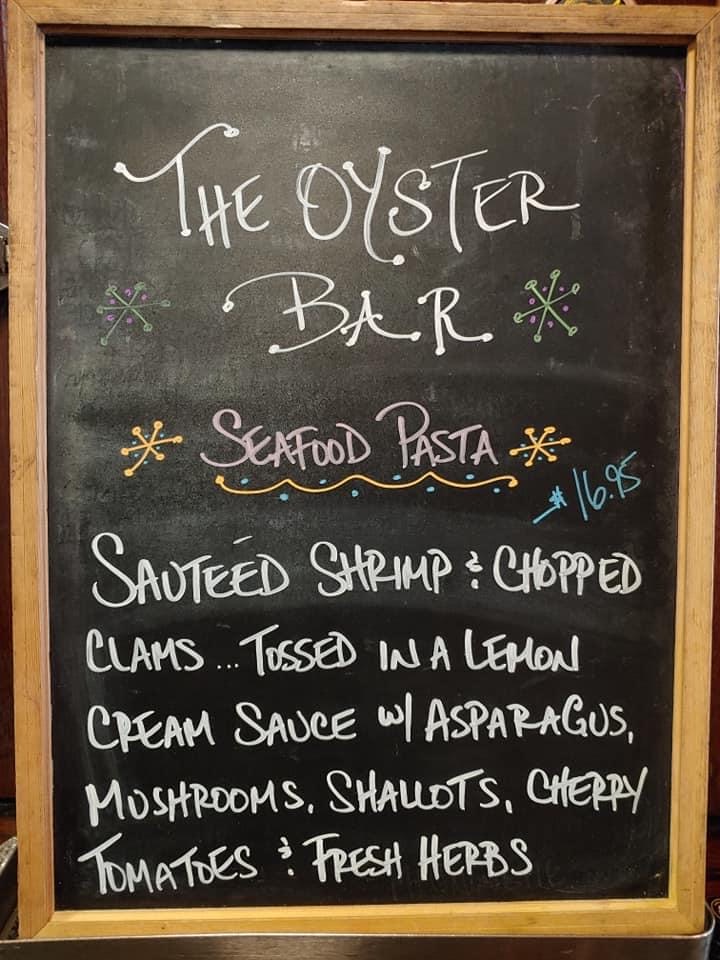 THE OYSTER
BAR
SEAFOOD PASTA
$16.95
SAUTEÉD SHRIMP & CHOPPED
CLAMS... TOSSED IN A LEMON
CREAM SAUCE W/ ASPARAGUS,
MUSHROOMS, SHALLOTS, CHERRY
TOMATOES & FRESH HERBS